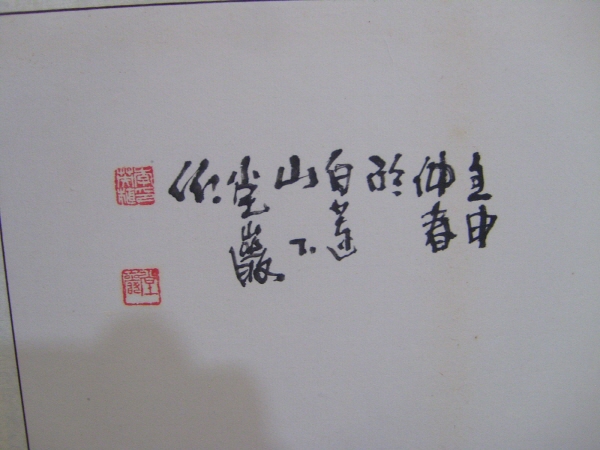 壬申
仲春
於
白蓮
山下
堂巖
作